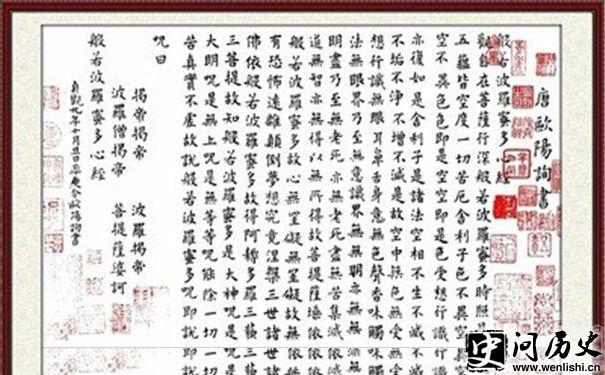 唐歐陽詢書
般若波羅蜜多心經
觀自在菩薩行深般若波羅蜜多時照見
五蘊皆空度一切苦厄舍利子色不異空
空不異色色即是空空即是色受想行識
亦復如是舍利子是諸法空相不生不滅
不垢不淨不增不減是故空中無色無受
想行識無眼耳鼻舌身意無色聲香味觸
法無眼界乃至無意識界無無明亦無
明盡乃至無老死亦無老死盡無苦集滅
道無智亦無得以無所得故菩提薩埵依
般若波羅蜜多故心無罣礙無罣礙故無
有恐怖遠離顛倒夢想究竟涅槃三世諸
佛依般若波羅蜜多故得阿耨多羅三藐三
三菩提故知般若波羅蜜多是大神咒是
大明咒是無上咒是無等等咒能除一切
苦真實不虛故說般若波羅蜜多咒即說
咒曰
揭帝揭帝 波羅揭帝
波羅僧揭帝 菩提薩婆訶
般若波羅蜜多心經
貞觀九年十月旦日率更令歐陽詢書
问历史
www.wenlishi.cn